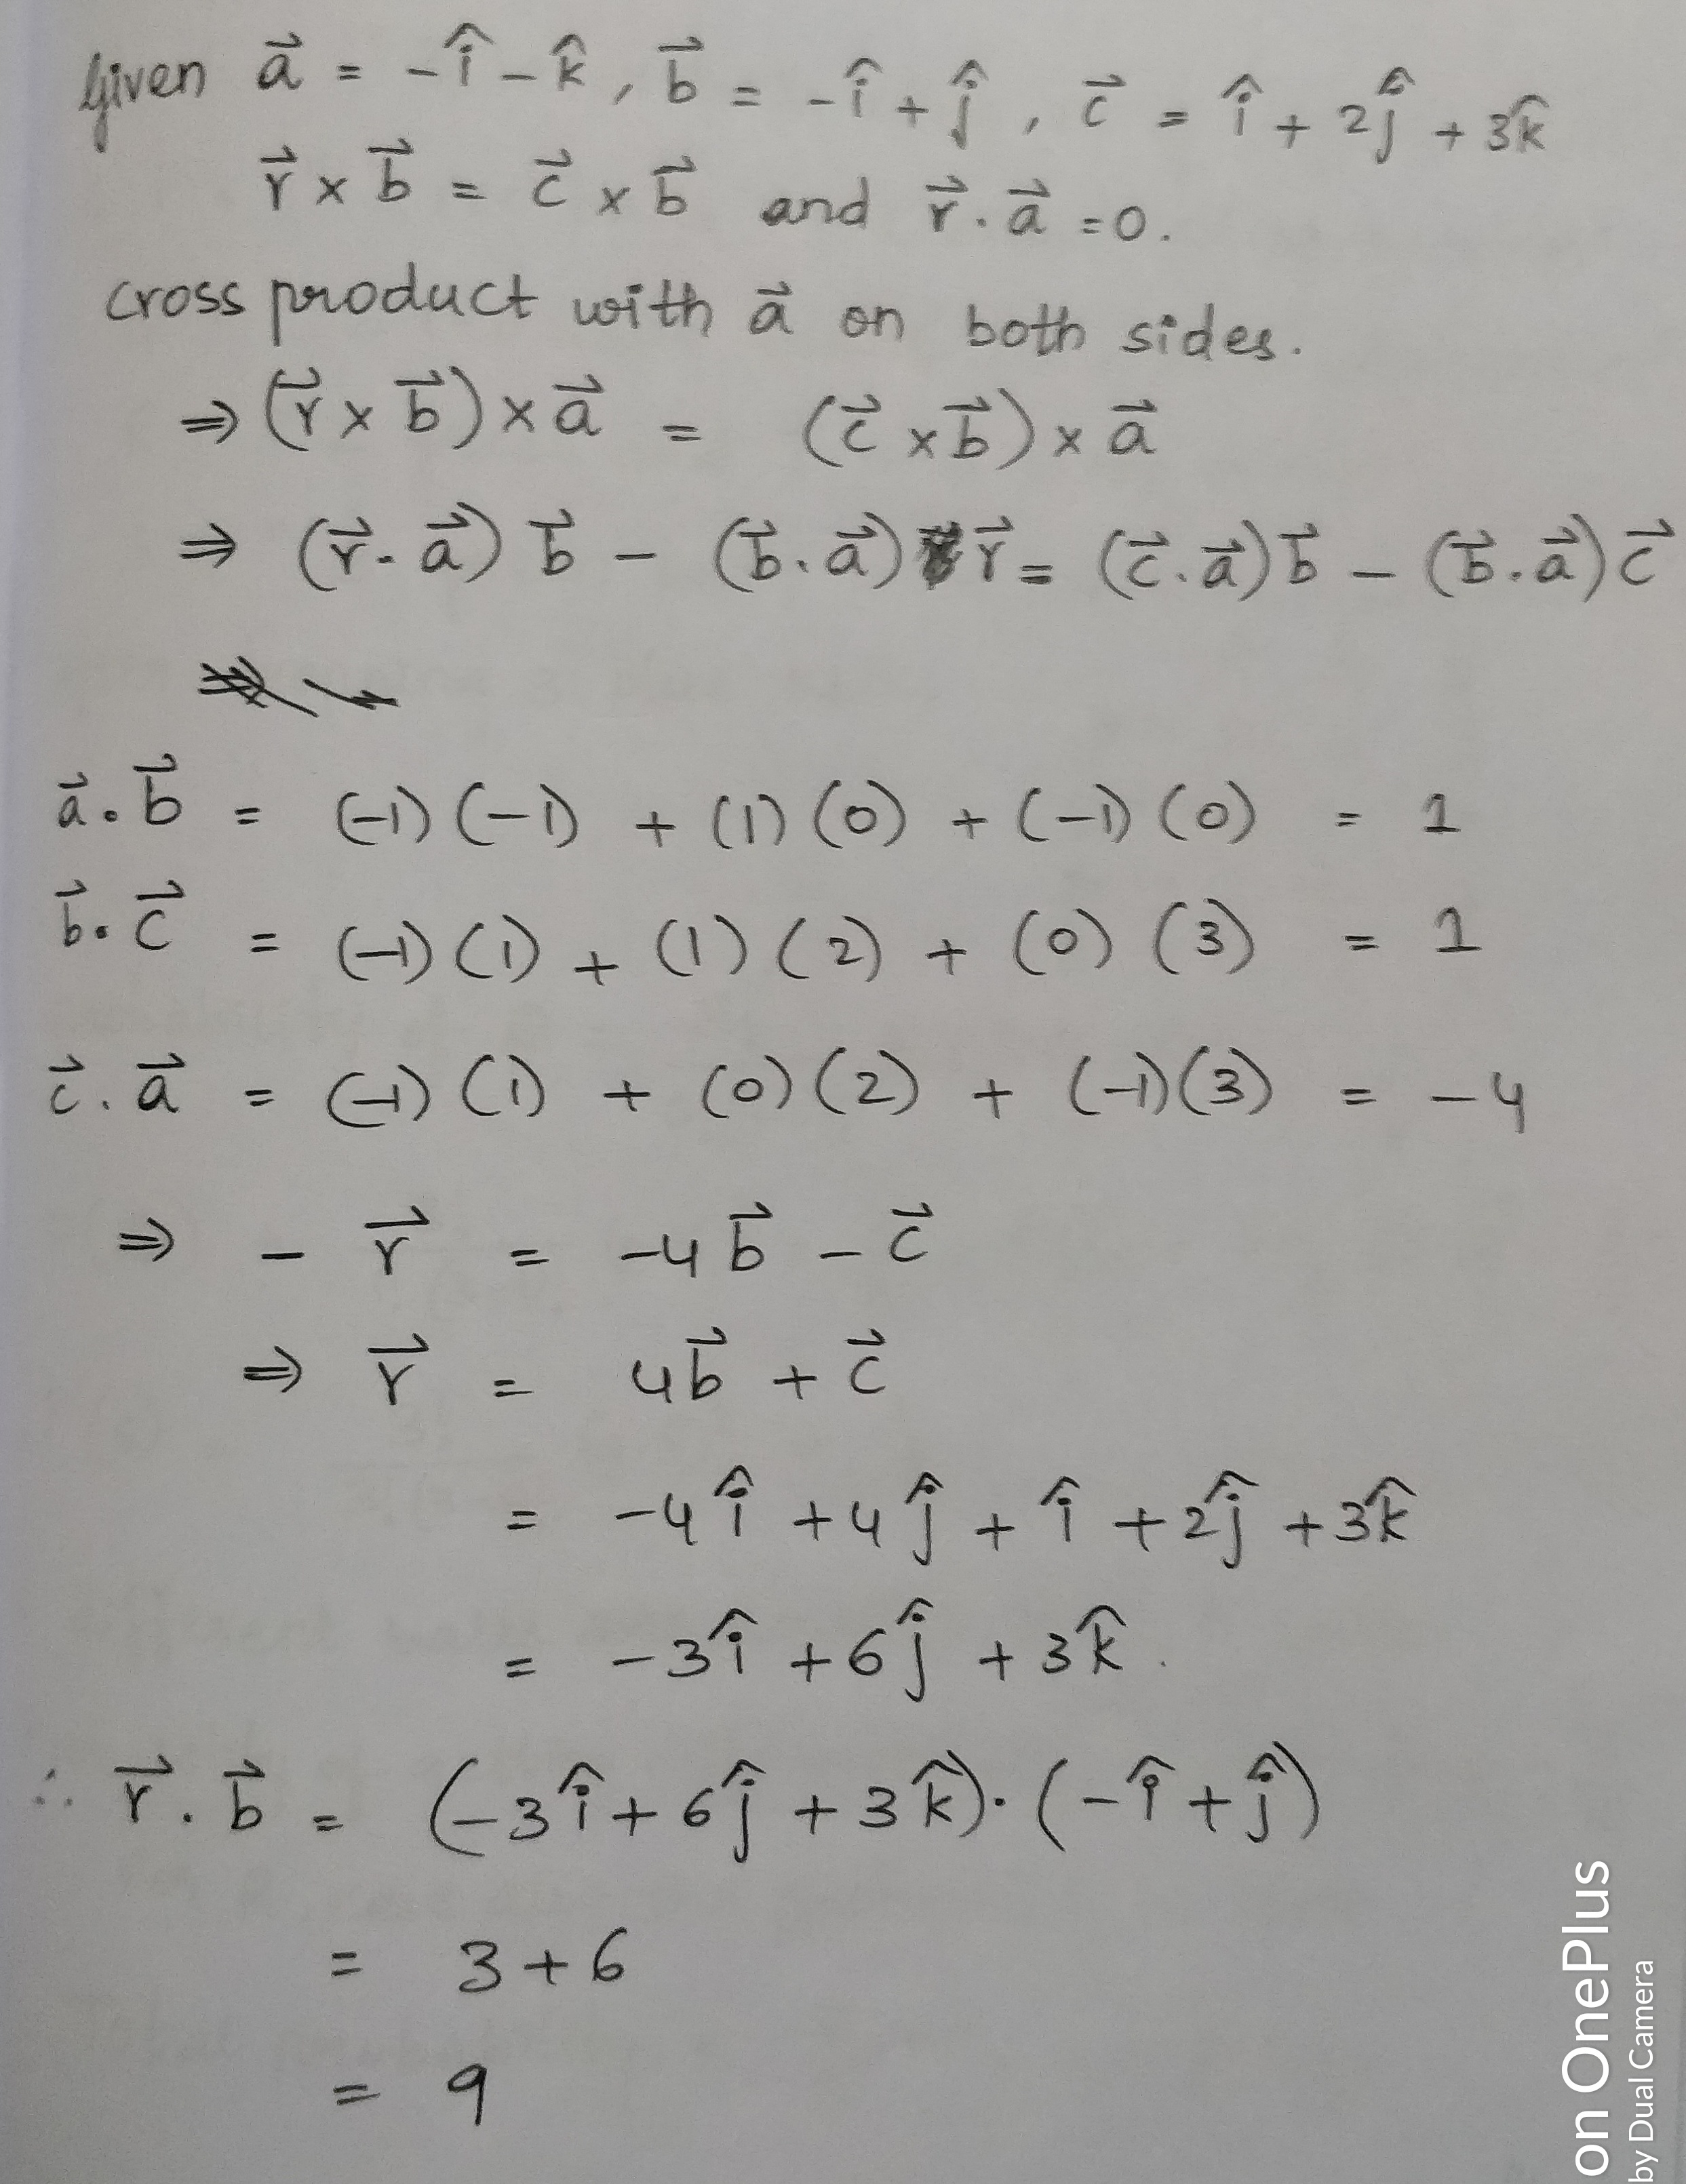 Given a⃗ = -î - k̂ , b⃗ = -î + ĵ , c⃗ = î + 2ĵ + 3k̂
r⃗ × b⃗ = c⃗ × b⃗ and r⃗ . a⃗ = 0.
cross product with a⃗ on both sides.
⇒ (r⃗ × b⃗) × a⃗ = (c⃗ × b⃗) × a⃗
⇒ (r⃗ . a⃗) b⃗ - (b⃗ . a⃗) r⃗ = (c⃗ . a⃗) b⃗ - (b⃗ . a⃗) c⃗
a⃗ . b⃗ = (-1) (-1) + (1) (0) + (-1) (0) = 1
b⃗ . c⃗ = (-1) (1) + (1) (2) + (0) (3) = 1
c⃗ . a⃗ = (-1) (1) + (0) (2) + (-1) (3) = -4
⇒ - r⃗ = -4 b⃗ - c⃗
⇒ r⃗ = 4b⃗ + c⃗
= -4î + 4ĵ + î + 2ĵ + 3k̂
= -3î + 6ĵ + 3k̂ .
∴ r⃗ . b⃗ = (-3î + 6ĵ + 3k̂) . (-î + ĵ)
= 3 + 6
= 9
on OnePlus
by Dual Camera